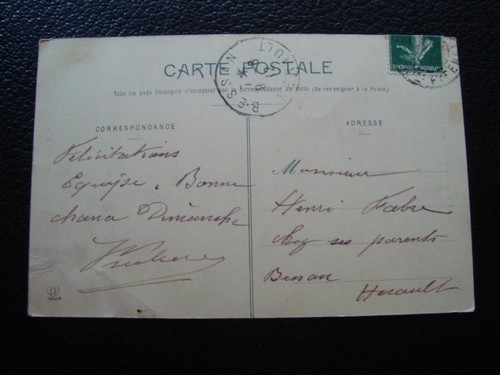 CARTE POSTALE
Tous les pays étrangers n'acceptent pas la correspondance au recto (Se renseigner à la Poste)
CORRESPONDANCE
ADRESSE
Félicitations
Bonne
Dimanche
Monsieur
Henri Fabre
chez ses parents
Bessan
Herault